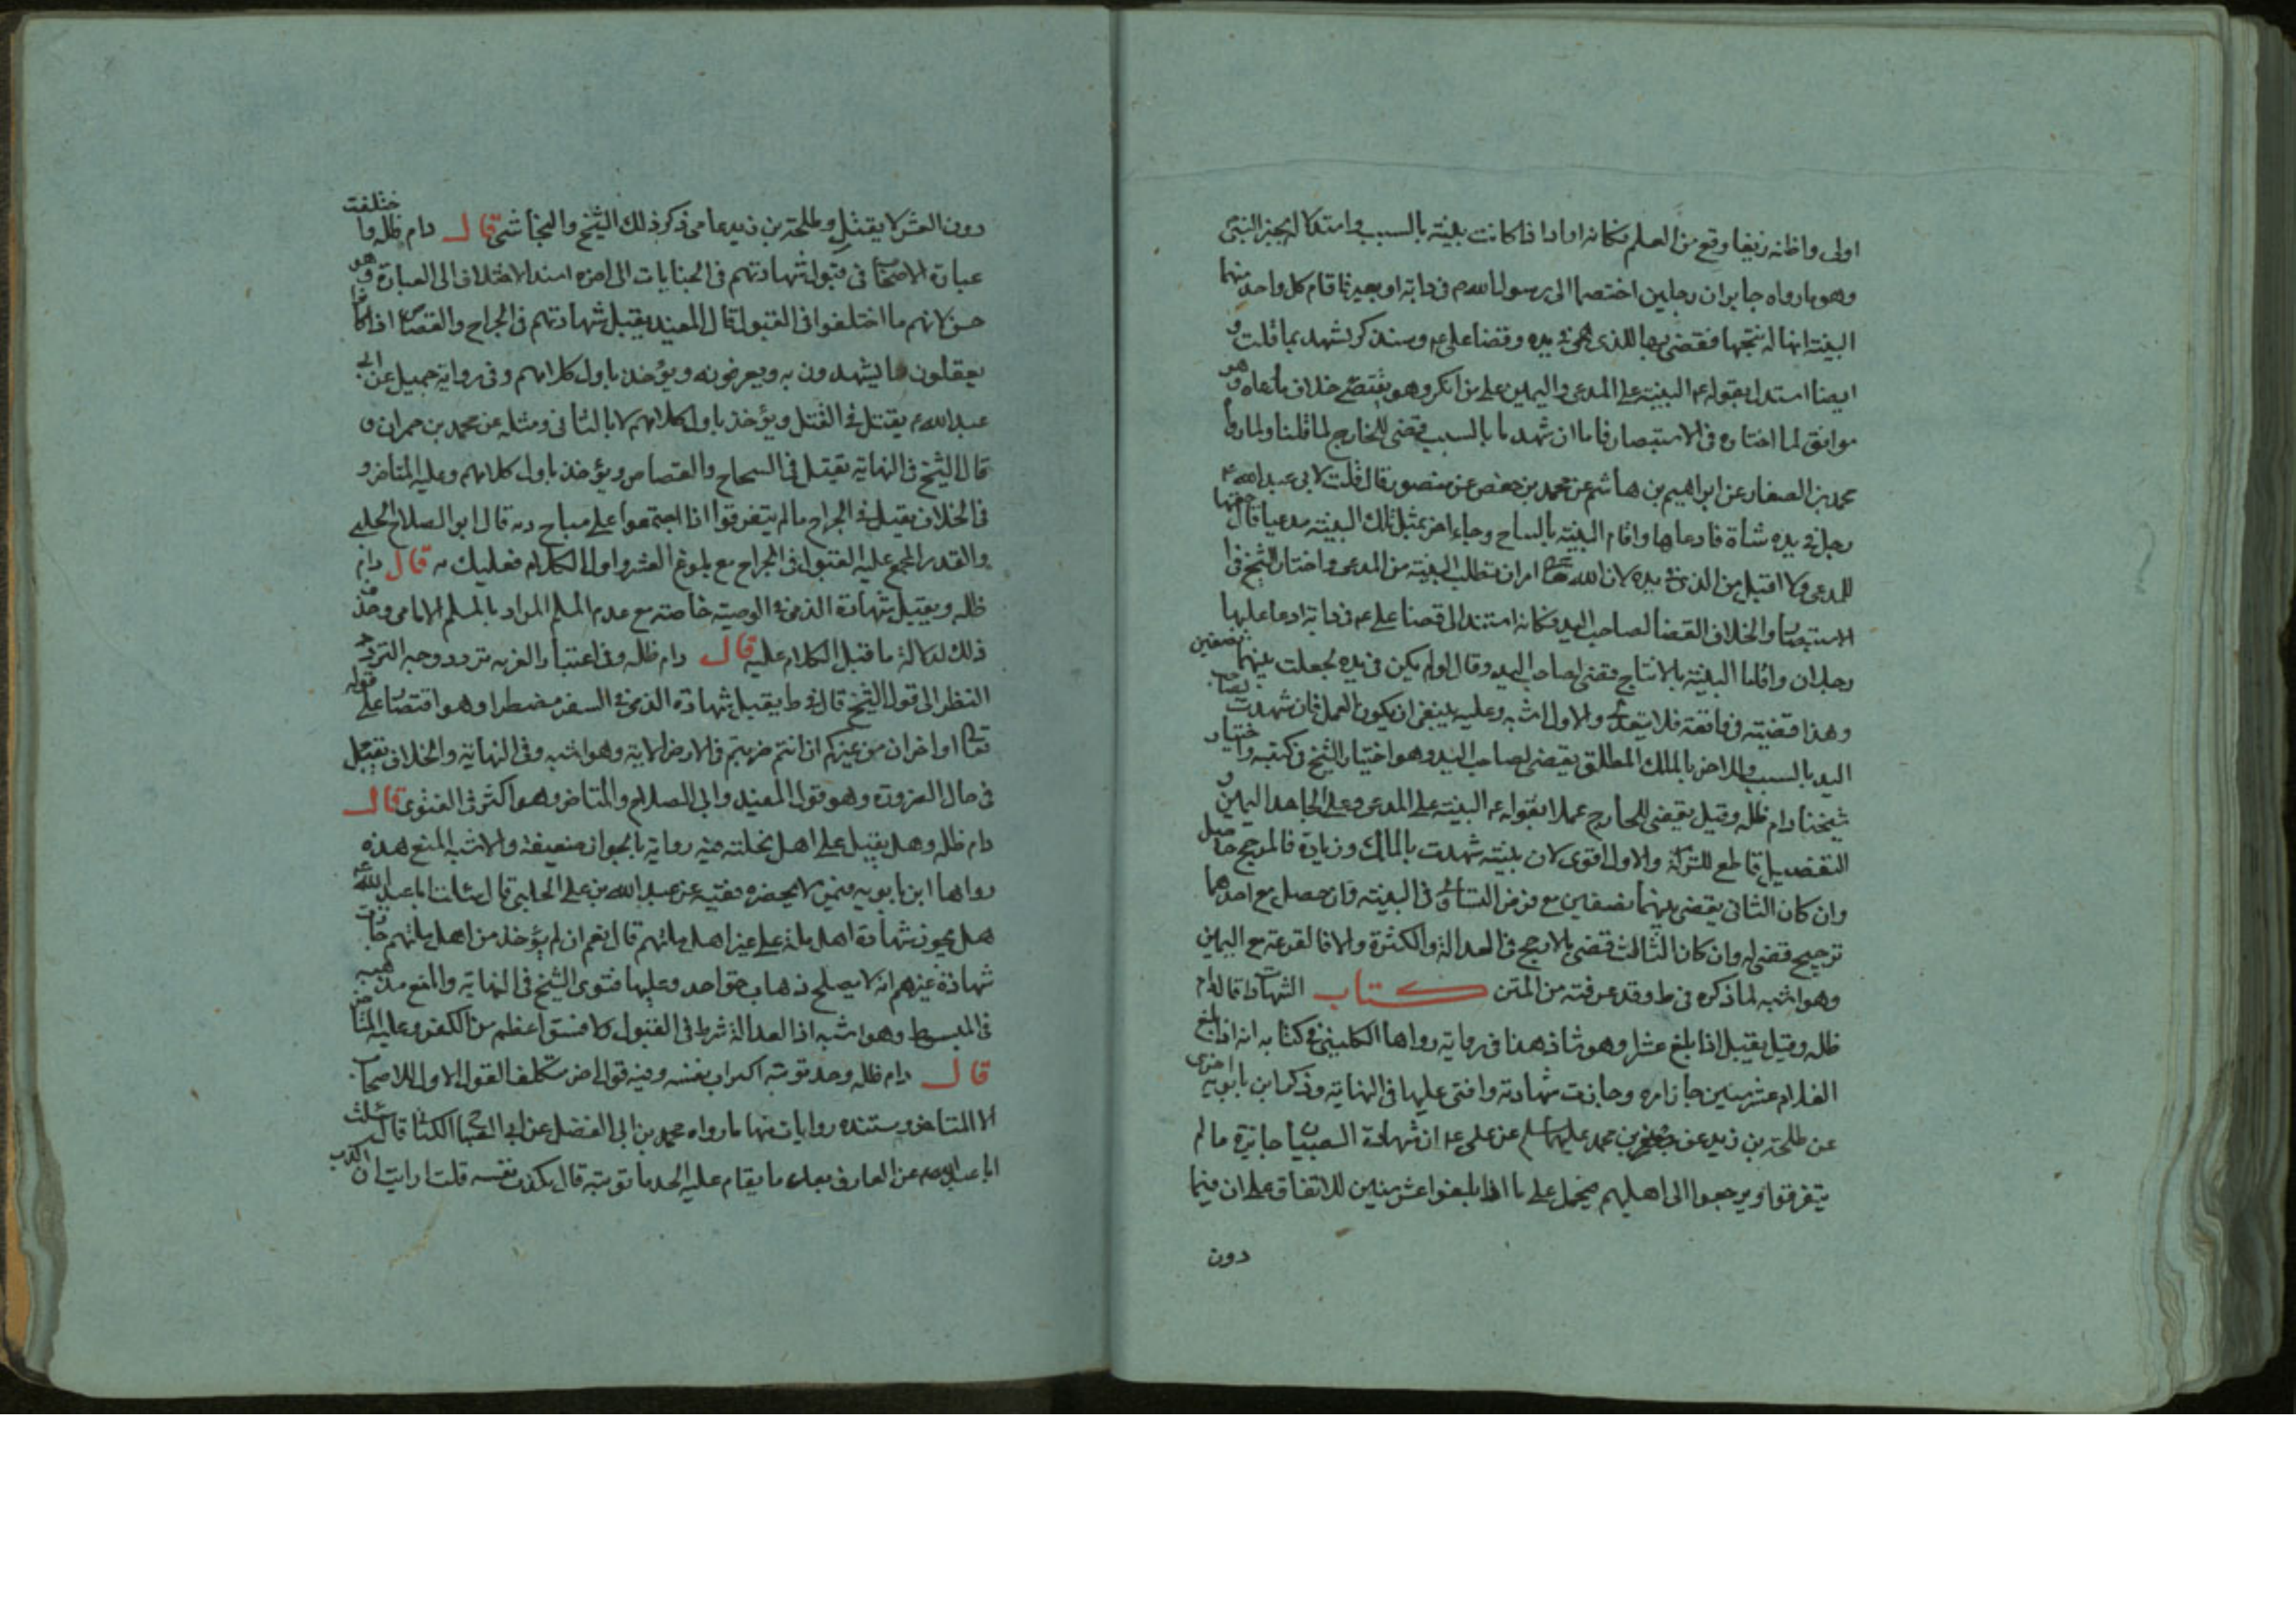 اولى واظنه زيغا وقع من القلم فكانه اراد اذا كانت بينة بالسبب وامتدلاله بخبر النبي
وهو ما رواه جابر ان رجلين اختصما الى رسول الله م فى دابة او بعير فاقام كل واحد منهما
البينة انها له نتجها فقضى بها للذى هى فى يده وقضا على ع وسنذكر نشهد بما قلت و
ايضا استدل بقوله ع البينة على المدعى واليمين على من انكر وهو يقتضى خلاف مادعاه وهو
موافق لما اختاره فى الاستبصار فاما ان شهدتا بالسبب فقضى للخارج لما قلنا ولما رواه
محمد بن الصفار عن ابراهيم بن هاشم عن محمد بن حفص عن منصور قال قلت لابى عبد الله ع
رجل فى يده شاة فادعاها واقام البينة بالساج وجاء اخر بمثل تلك البينة مدعيا قال حقها
للمدعى ولا اقبل من الذى فى يده لان الله تعالى امر ان تطلب البينة من المدعى واختار الشيخ فى
الاستبصار والخلاف القضا لصاحب اليد فكانه استند الى قضا على ع فى دابة ادعا عليها
رجلان واقاما البينة بالانتاج فقضى لصاحب اليد وقال لو لم يكن فى يده لجعلت بينهما نصفين
وهذا قضية فى واقعة فلا يتعدى والاول اشبه وعليه ينبغى ان يكون العمل فان شهدت لصاحب
اليد بالسبب وللاخر بالملك المطلق يقضى لصاحب اليد وهو اختيار الشيخ فى كتبه واختيار
شيخنا دام ظله وقيل يقضى للخارج عملا بقوله ع البينة على المدعى وعلى الجاحد اليمين و
التفصيل قاطع للشركة والاول اقوى لان بينته شهدت بالملك وزيادة فالمرجح حاصل
وان كان الثانى يقضى بينهما نصفين مع فرض التساوى فى البينة وان حصل مع احدهما
ترجيح قضى له وان كان الثالث قضى بالارجح فى العدالة والكثرة والا فالقرعة مع اليمين
وهو اشبه لما ذكره فى ط وقد عرفته من المتن كتاب الشهادات قال دام
ظله وقيل يقبل اذا بلغ عشرا وهو شاذ هذا فى رواية رواها الكلينى فى كتابه انه اذا بلغ
الغلام عشر سنين جاز امره وجازت شهادته وافتى عليها فى النهاية وذكر ابن بابويه اخرى
عن طلحة بن زيد عن جعفر بن محمد عليهما السلم عن على ع ان شهادة الصبيان جايزة ما لم
يتفرقوا ويرجعوا الى اهليهم فيحمل على ما اذا بلغوا عشر سنين للاتفاق على ان فيما
دون
دون العشر لا يقبل وطلحة بن زيد عامى ذكر ذلك الشيخ والنجاشى قال دام ظله واختلفت
عبارة الاصحاب فى قبول شهادتهم فى الجنايات الى اخره اسند الاختلاف الى العبارة وهو
حسن لانهم ما اختلفوا فى القبول قال المفيد يقبل شهادتهم فى الجراح والقصاص اذا كانوا
يعقلون ما يشهدون به ويعرفونه ويؤخذ باول كلامهم وفى رواية جميل عن ابى
عبد الله ع يقبل فى القتل ويؤخذ باول كلامهم لا بالثانى ومثله عن محمد بن حمران و
قال الشيخ فى النهاية يقبل فى السجاح والقصاص ويؤخذ باول كلامهم وعليه المتاخر و
فى الخلاف يقبل فى الجراح ما لم يتفرقوا اذا اجتمعوا على مباح وبه قال ابو الصلاح الحلبى
والقدر المجمع عليه القبول فى الجراح مع بلوغ العشر واول الكلام فعليك به قال دام
ظله ويقبل شهادة الذمى فى الوصية خاصة مع عدم المسلم المراد بالمسلم الامامى وحذف
ذلك لدلالة ما قبل الكلام عليه قال دام ظله وفى اعتبار الغربة تردد وجه التردد
النظر الى قول الشيخ قال فى ط يقبل شهادة الذمى فى السفر مضطرا وهو اقتصار على قوله
تعالى او اخران من غيركم ان انتم ضربتم فى الارض الاية وهو اشبه وفى النهاية والخلاف تقبل
فى حال الضرورة وهو قول المفيد وابى الصلاح والمتاخر وهو اكثر فى الفتوى قال
دام ظله وهل يقبل على اهل نحلته فيه رواية بالجواز ضعيفة والاشبه المنع هذه
رواها ابن بابويه فى من لا يحضره فقيه عن عبد الله بن على الحلبى قال سئالت ابا عبد الله ع
هل يجوز شهادة اهل ملة على غير اهل ملتهم قال نعم ان لم يؤخذ من اهل ملتهم جازت
شهادة غيرهم انه لا يصلح ذهاب حق احد وعليها فتوى الشيخ فى النهاية والمنع مذهبه
فى المبسوط وهو اشبه اذ العدالة شرط فى القبول ولا فسق اعظم من الكفر وعليه المتاخر
قال دام ظله وحد توبته اكذاب نفسه وفيه قول اخر متكلف القول الاول للاصحاب
الا المتاخر ومستنده روايات منها ما رواه محمد بن ابى الفضل عن ابى الصباح الكنانى قال سئلت
ابا عبد الله ع عن القاذف بعد ما يقام عليه الحد ما توبته قال يكذب نفسه قلت ارايت ان اكذب